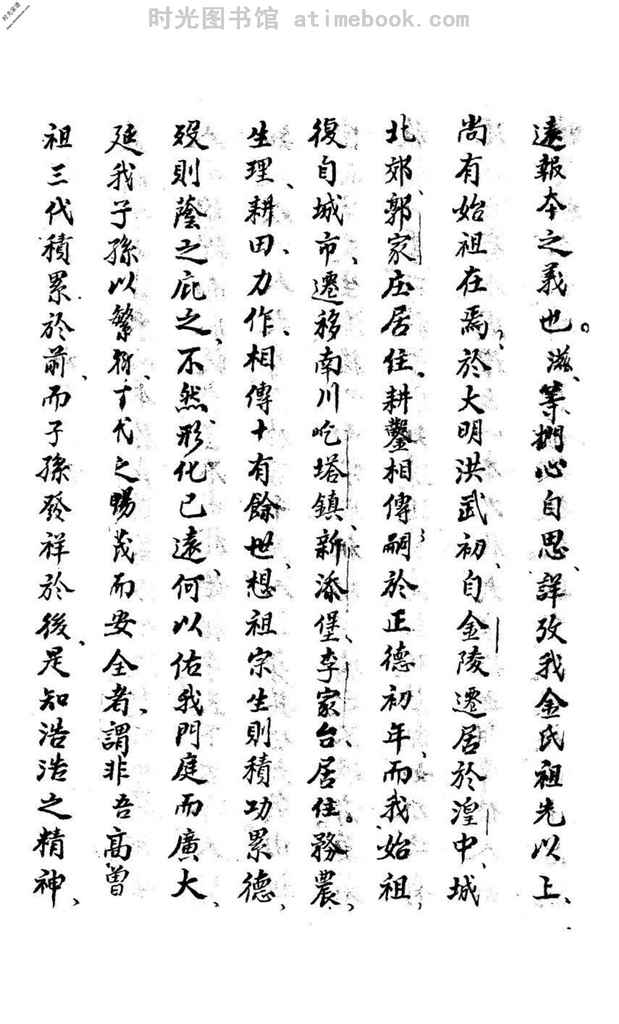 时光图书馆 atimebook.com
遠報本之義也。滋、等捫心自思、詳攷我金氏祖先以上、
尚有始祖在焉、於大明洪武初、自金陵遷居於湟中、城
北郊、郭家庄居住。耕鑿相傳、嗣於正德初年、而我始祖、
復自城市、遷移南川吃塔鎮、新添堡、李家台、居住。務農、
生理、耕田、力作、相傳十有餘世、想祖宗生則積功累德、
歿則蔭之庇之、不然形化已遠、何以佑我門庭而廣大、
延我子孫以繁衍、十代之賜茂而安全者、謂非吾高曾
祖三代積累於前、而子孫發祥於後、是知浩浩之精神、